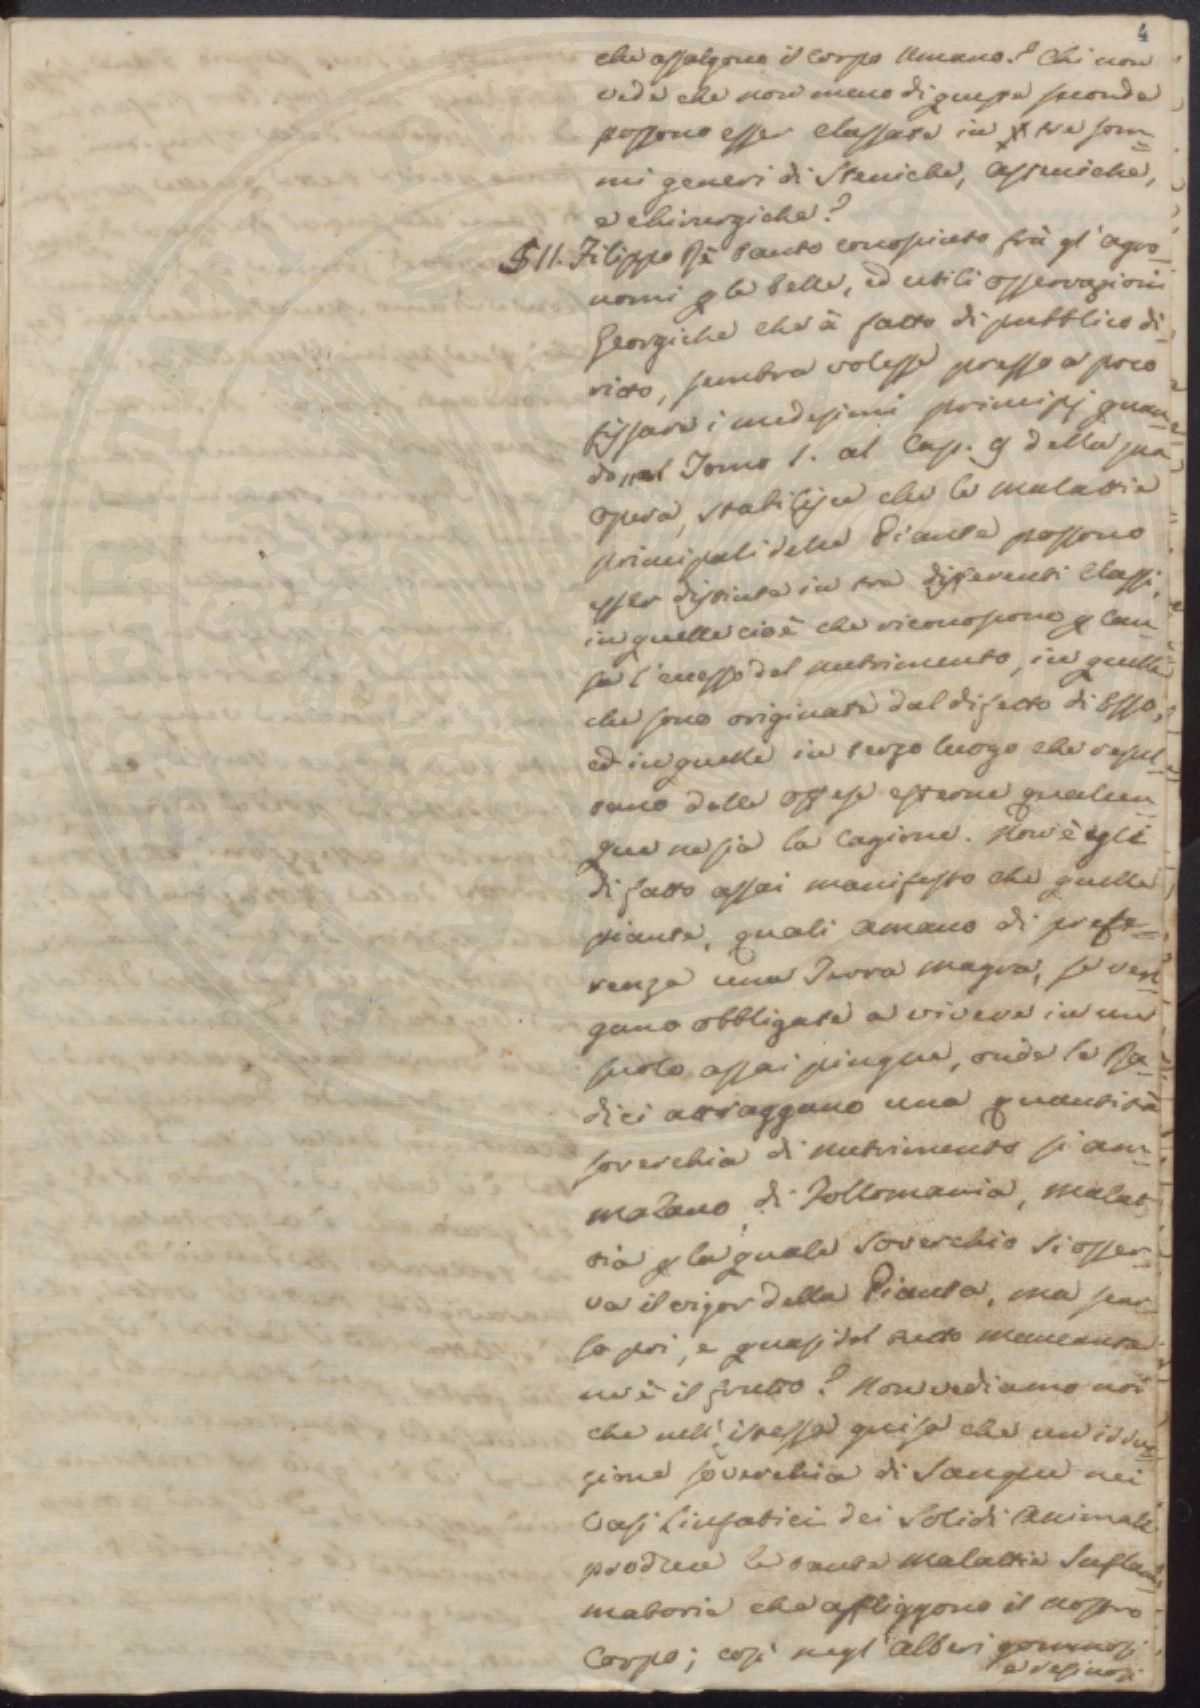 4
che assalgono il corpo Umano? Chi non
vede che non meno di queste seconde
possono esser classate in tre som=
mi generi di Steniche, Asteniche,
e chirurgiche?
§ II. Filippo Rè tanto conosciuto frà gl' agro=
nomi p le belle, ed utili osservazioni
Georgiche che à fatto di pubblico di=
ritto, sembra volesse presso a poco
fissare i medesimi principj quan=
do nel Tomo 1. al Cap. 9 della sua
opera, stabilisce che le malattie
principali delle Piante possono
esser distinte in tre differenti Classi,
in quelle cioè che riconoscono p Cau=
sa l'eccesso del nutrimento, in quelle
che sono originate dal difetto di Esso,
ed in quelle in terzo luogo che resul=
tano dalle offese esterne qualun=
que ne sia la Cagione. Non è egli
di fatto assai manifesto che quelle
piante, quali amano di prefe=
renza una Terra magra, se ven=
gano obbligate a vivere in un
suolo assai pingue, onde le Ra=
dici attraggano una quantità
soverchia di nutrimento si am=
malano di Follomania, malat=
tia p la quale Soverchio si osser=
va il vigor della Pianta, ma scar=
so poi, e quasi del tutto mancante
ne è il frutto? Non vediamo noi
che nell' istessa guisa che un' irru=
zione soverchia di Sangue nei
Vasi Linfatici dei Solidi Animali
produce le tante malattie Infiam=
matorie che affliggono il nostro
Corpo; così negl' Alberi gommosi
e resinosi